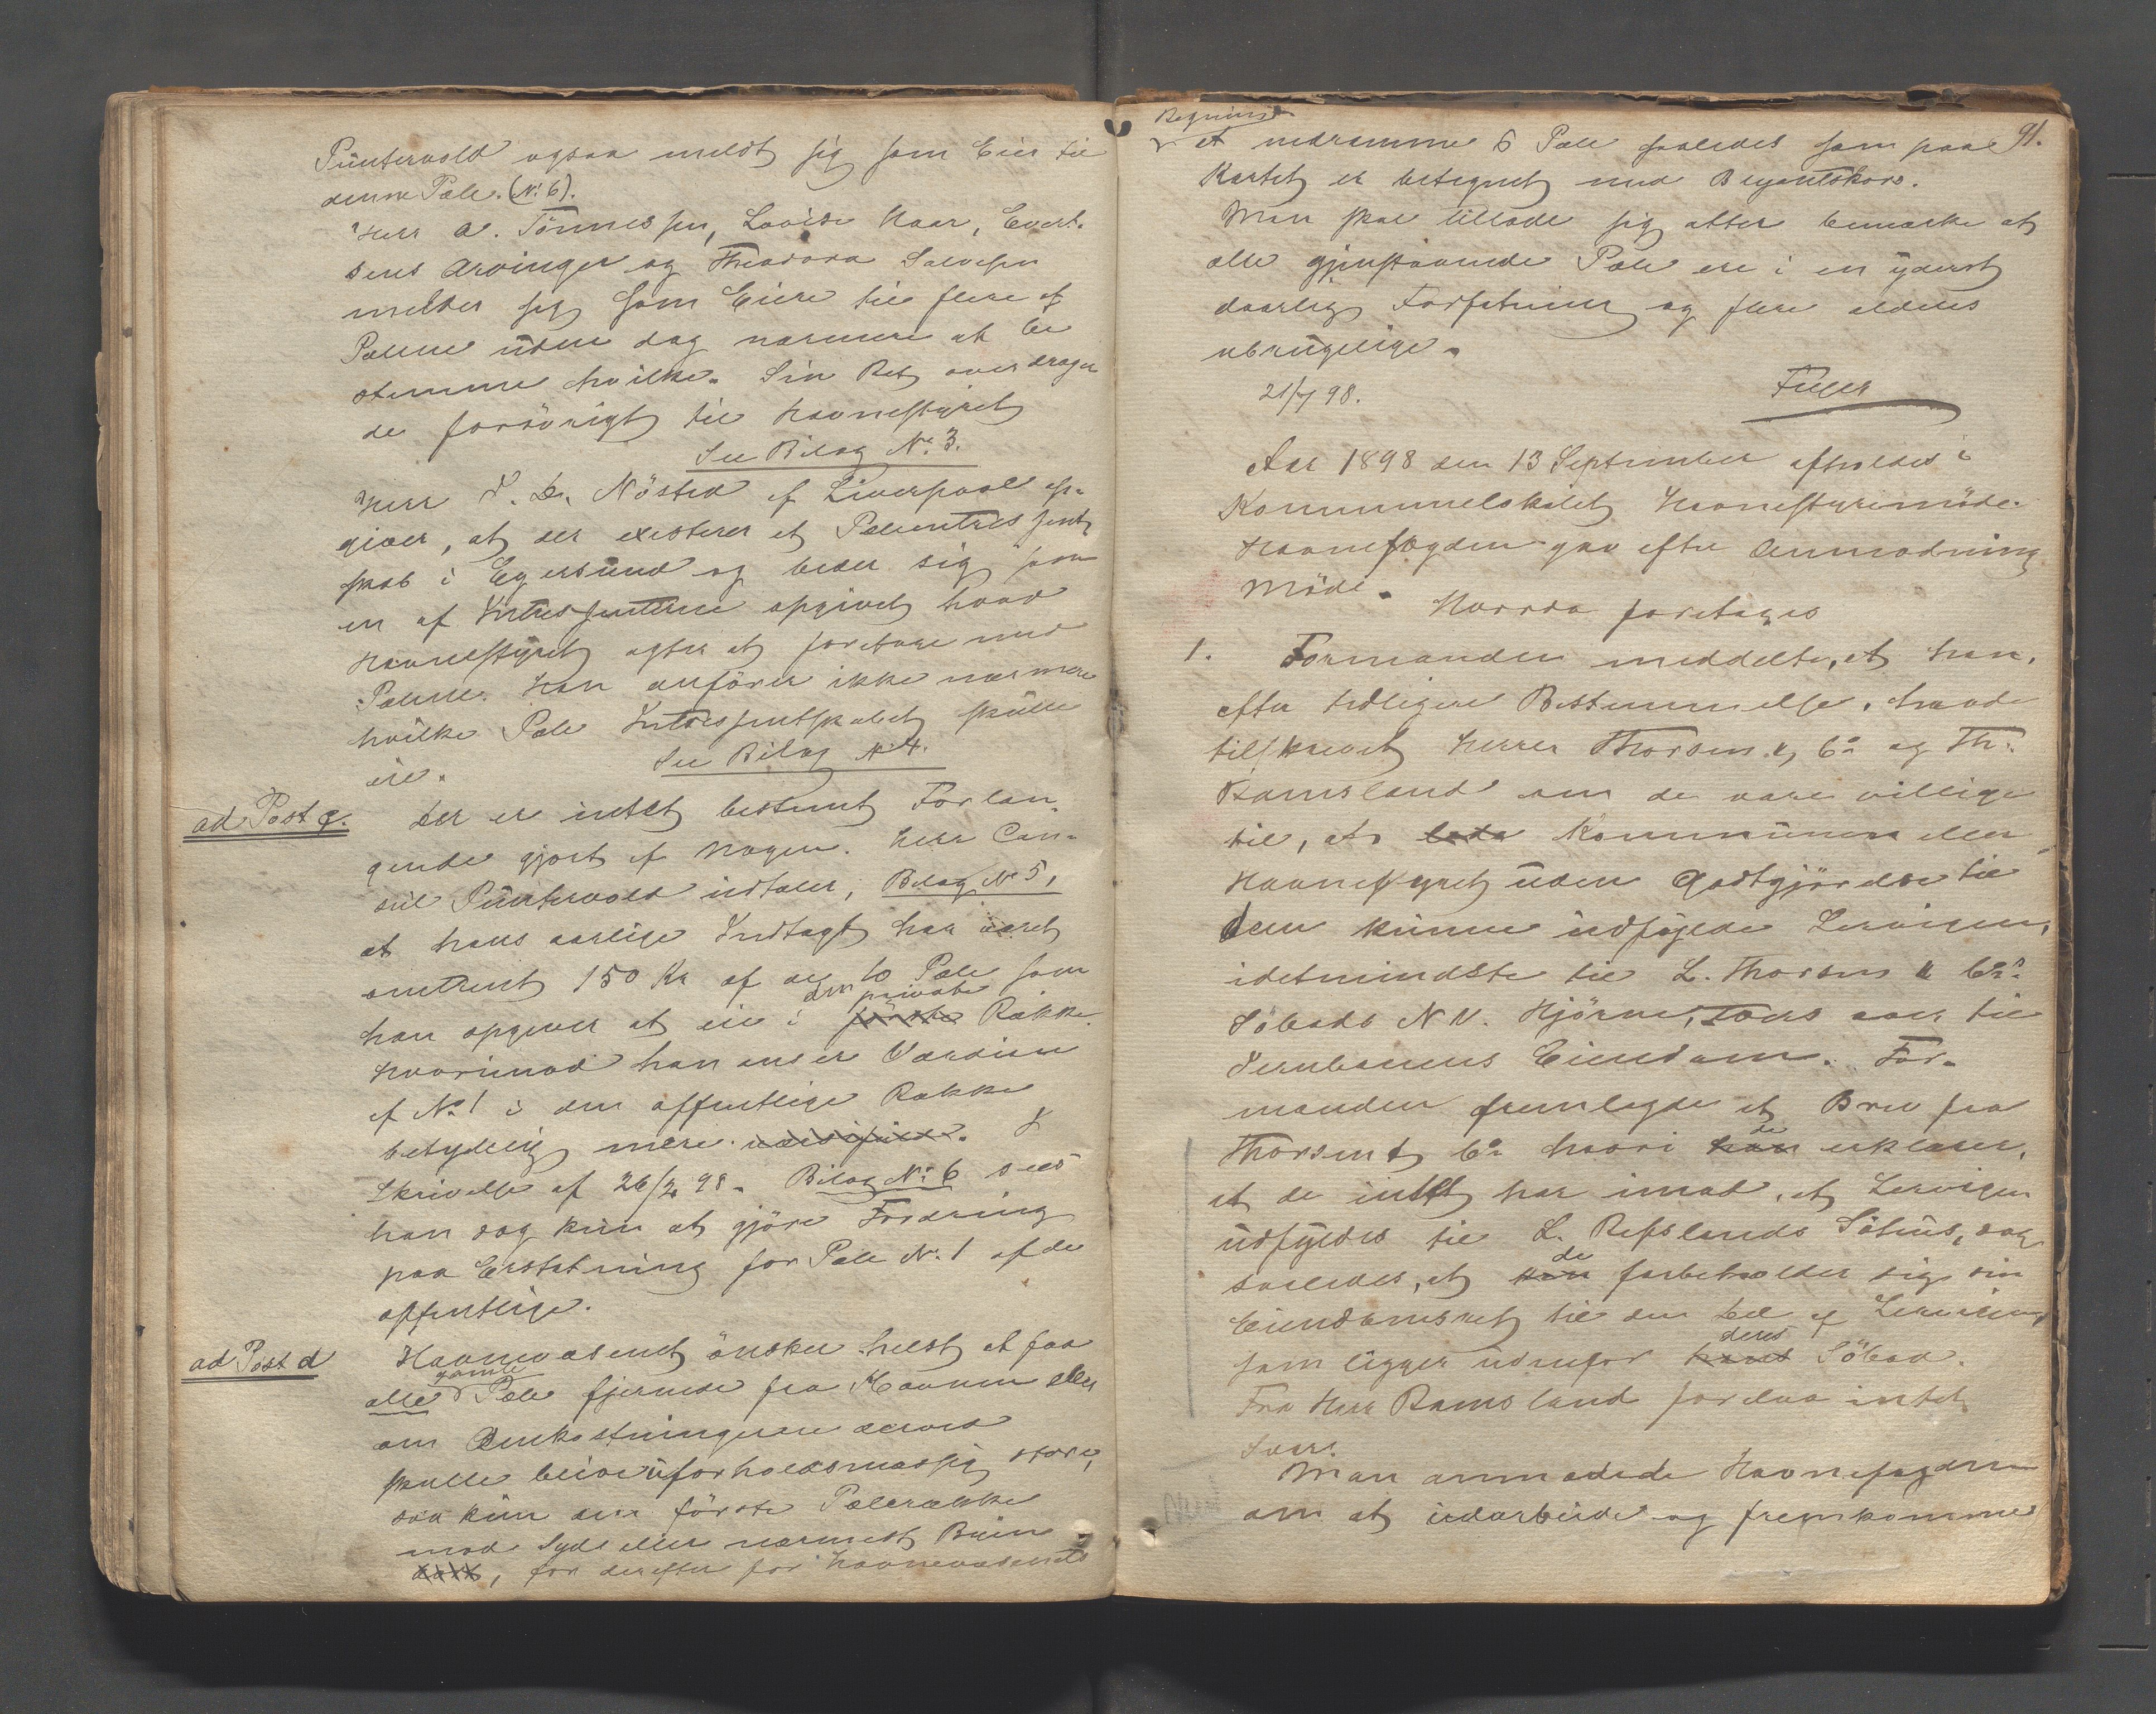 Püntervold ogsaa meldt sig som Eier til
denne Pæle. (No 6).
Herr A. Tönnessen, Lovise Haar, Evert-
sens Arvinger og Theodora Salvesen
melder sig som Eiere til flere af
Pælene uden dog nærmere at be
stemme hvilke. Sin Ret overdrager
de forövrigt til Havnestyret
See Bilag No 3.
Herr Nösted af Liverpool op-
giver, at der existerer et Pæleintressent
skab i Egersund og beder sig som
en af Intressenterne opgivet hvad
Havnestyret agter at foretage med
Pælene. Han anförer ikke nærmere
hvilke Pæle Intressentskabet skulle
eie.
See Bilag No 4.
ad Post c. Der er intet bestemt Forlan-
gende gjort af Nogen. Herr Con-
sul Püntervold udtaler, Bilag No 5,
at hans aarlige Indtægt har været
omtrent 150 Kr af de 10 Pæle som
han opgiver at eie i den private Række
hvorimod han anser Værdien
af No 1 i den offentlige Række
betydelig mere. I
Skrivelse af 26/2 98. Bilag No 6 sees
han dog kun at gjöre Fordring
paa Erstatning for Pæle No 1 af de
offentlige.
ad Post d Havnevæsenet önsker helst at faa
alle gamle Pæle fjernede fra Havnen eller
om Omkostningerne derved
skulle blive uforholdsmæssig store,
saa kun den förste Pælerække
mod Syd eller nærmest Byen
, for derefter for Havnevæsenets
Regning
at nedramme 6 Pæle saaledes som paa 91.
Kartet er betegnet med Blyantskors.
Man skal tillade sig atter bemærke at
alle gjenstaaende Pæle ere i en yderst
daarlig Forfatning og flere aldeles
ubrugelige.
21/7 98. Füller
Aar 1898 den 13 September afholdes i
Kommunelokalet Havnestyremöde.
Havnefogden gav efter Anmodning
Möde.
Hvorda foretages
1. Formanden meddelte, at han,
efter tidligere Bestemmelse, havde
tilskrevet Herrer Thorsen & Co og Th.
Ramsland om de vare villige
til, at lade Kommunen eller
Havnestyret uden Godtgjörelse til
dem kunne udfylde Lervigen,
idetmindste til L. Thorsen & Co's
Söbods N V. Hjörne, tvers over til
Jernbanens Eiendom. For-
manden fremlagde et Brev fra
Thorsen & Co hvori de erklærer,
at de intet har imod, at Lervigen
udfyldes til L. Refslands Söhus, dog
saaledes, at de forbeholder sig sin
Eiendomsret til den Del af Lervigen,
som ligger udenfor deres Söbod.
Fra Herr Ramsland forelaa intet
Svar.
Man anmodede Havnefogden
om at udarbeide og fremkomme